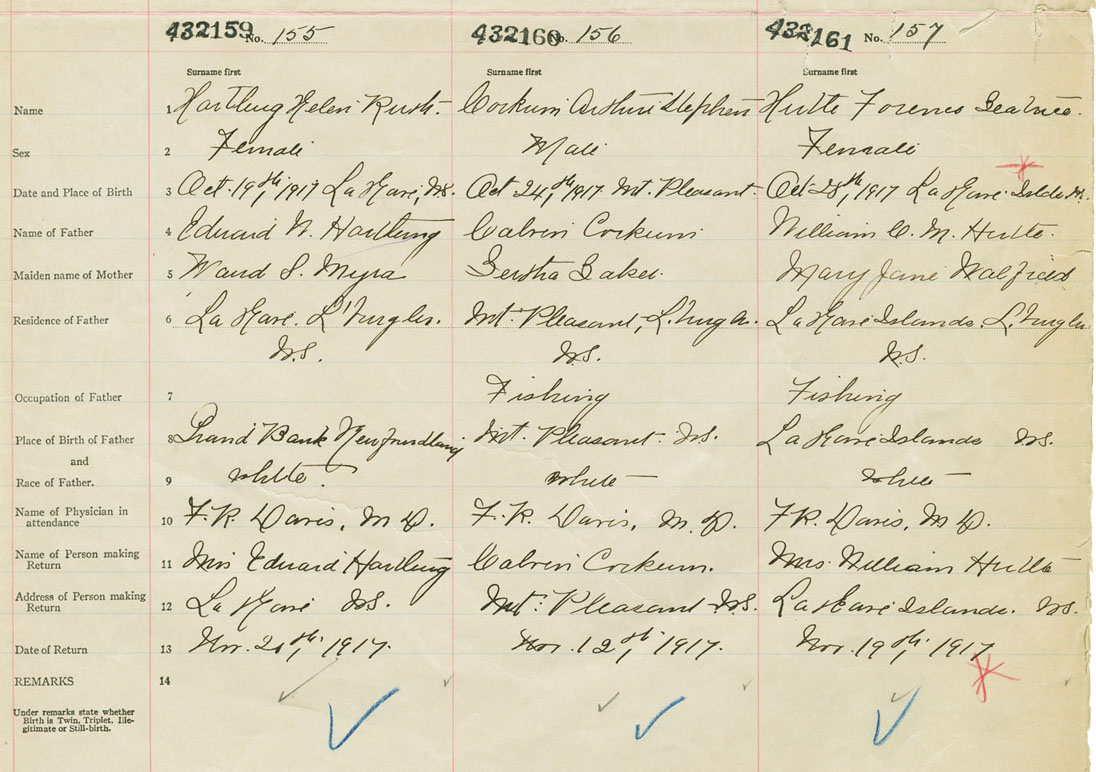 432159 No. 155 432160 No. 156 432161 No. 157
Surname first Surname first Surname first
Name 1 Hartling Helen Ruth. Corkum Arthur Stephen
Sex 2 Female Male Female
Date and Place of Birth 3 Oct 19th, 1917 La Have, N.S. Oct 24th, 1917 Mt. Pleasant Oct 28th, 1917 La Have Islds
Name of Father 4 Edward N. Hartling Calvin Corkum William C. M. Hutte.
Maiden name of Mother 5 Maud S. Myra Bertha Baker. Mary Jane
Residence of Father 6 La Have. Mt. Pleasant, La Have Islands,
N.S. N.S. N.S.
Occupation of Father 7 Fishing Fishing
Place of Birth of Father 8 Grand Bank Newfoundland Mt. Pleasant. N.S. La Have Islands N.S.
and
Race of Father. 9 white white white
Name of Physician in
attendance 10 F. R. Davis, M.D. F. R. Davis, M.D. F R. Davis, M D.
Name of Person making
Return 11 Mrs Edward Hartling Calvin Corkum. Mrs. William Hutte
Address of Person making
Return 12 La Have N.S. Mt. Pleasant N.S. La Have Islands. N.S.
Date of Return 13 Nov. 20th, 1917. Nov. 12th, 1917. Nov. 19th, 1917
REMARKS 14
Under remarks state whether
Birth is Twin, Triplet, Ille-
gitimate or Still-birth.